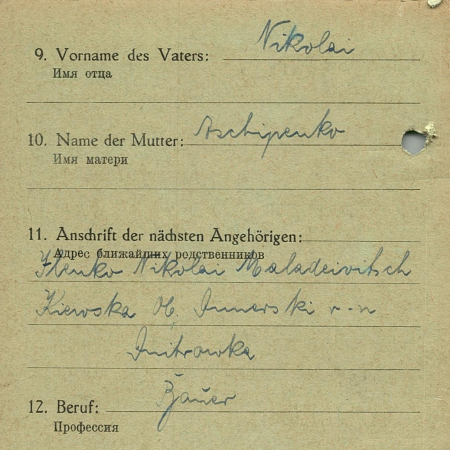 9. Vorname des Vaters: Nikolai
Имя отца
10. Name der Mutter: Aschipenko
Имя матери
11. Anschrift der nächsten Angehörigen:
Адрес ближайших родственников
Ilenko Nikolai
Kiewska Ob. r-n
12. Beruf: Bauer
Профессия